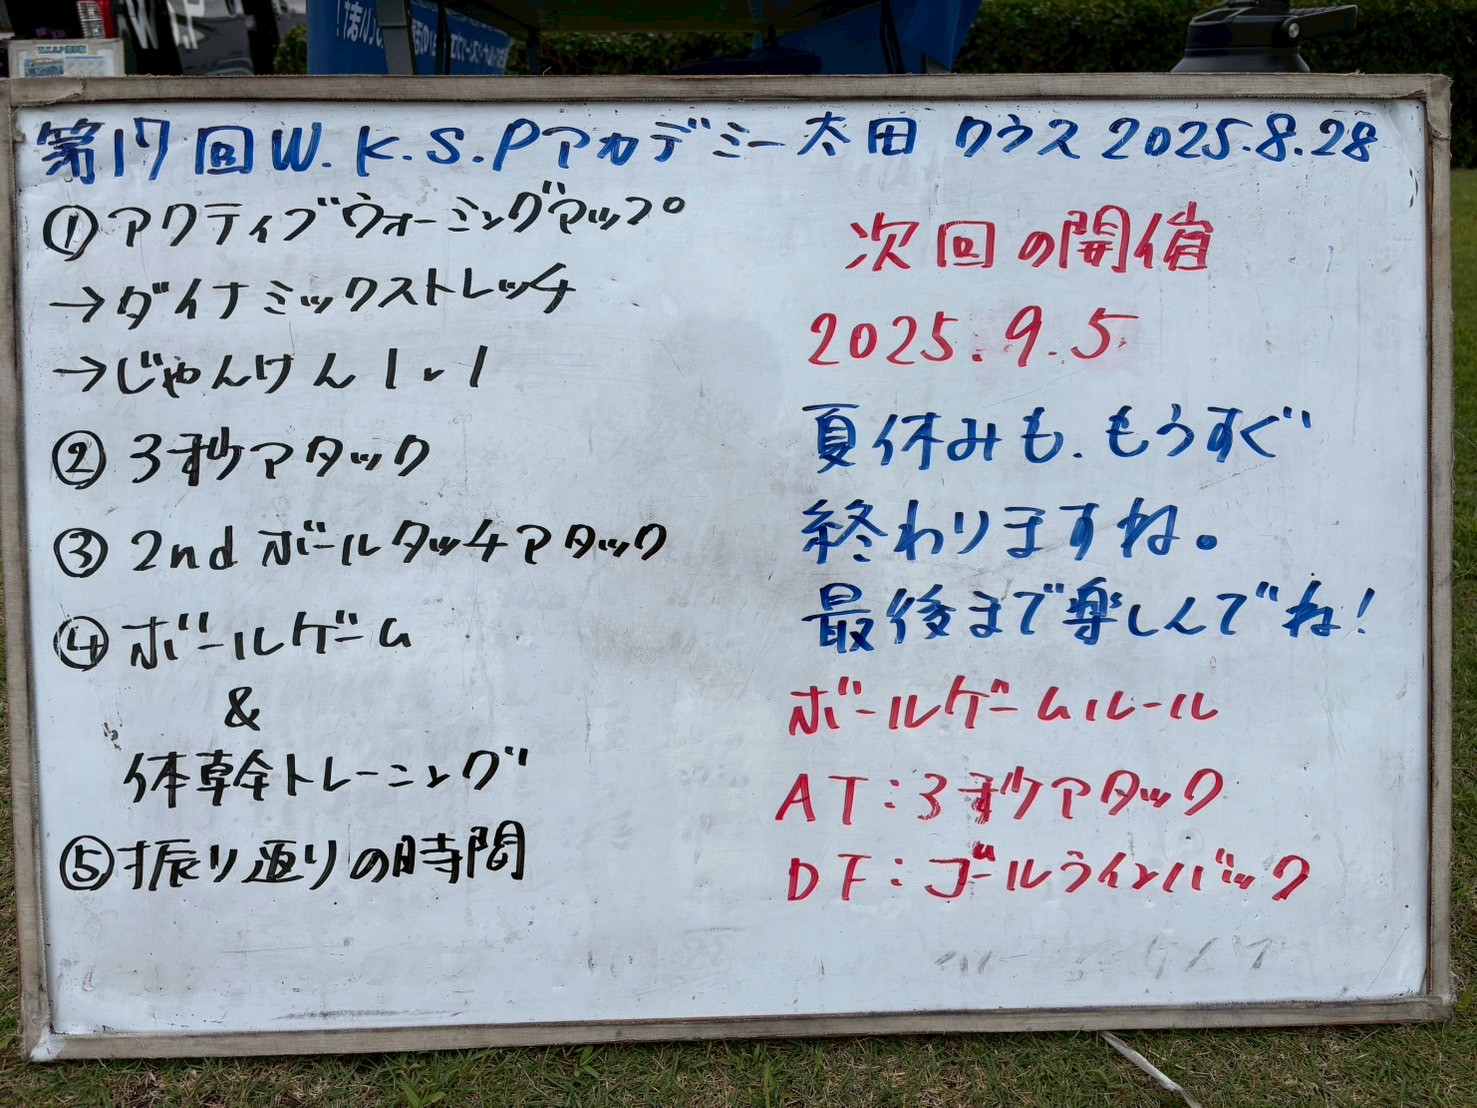 第17回W.K.S.Pアカデミー太田クラス2025.8.28
①アクティブウォーミングアップ
→ダイナミックストレッチ
→じゃんけん1v1
②3秒アタック
③2ndボールタッチアタック
④ボールゲーム
&
体幹トレーニング
⑤振り返りの時間
次回の開催
2025.9.5
夏休みも、もうすぐ
終わりますね。
最後まで楽しんでね！
ボールゲームルール
AT：3秒アタック
DF：ゴールラインバック